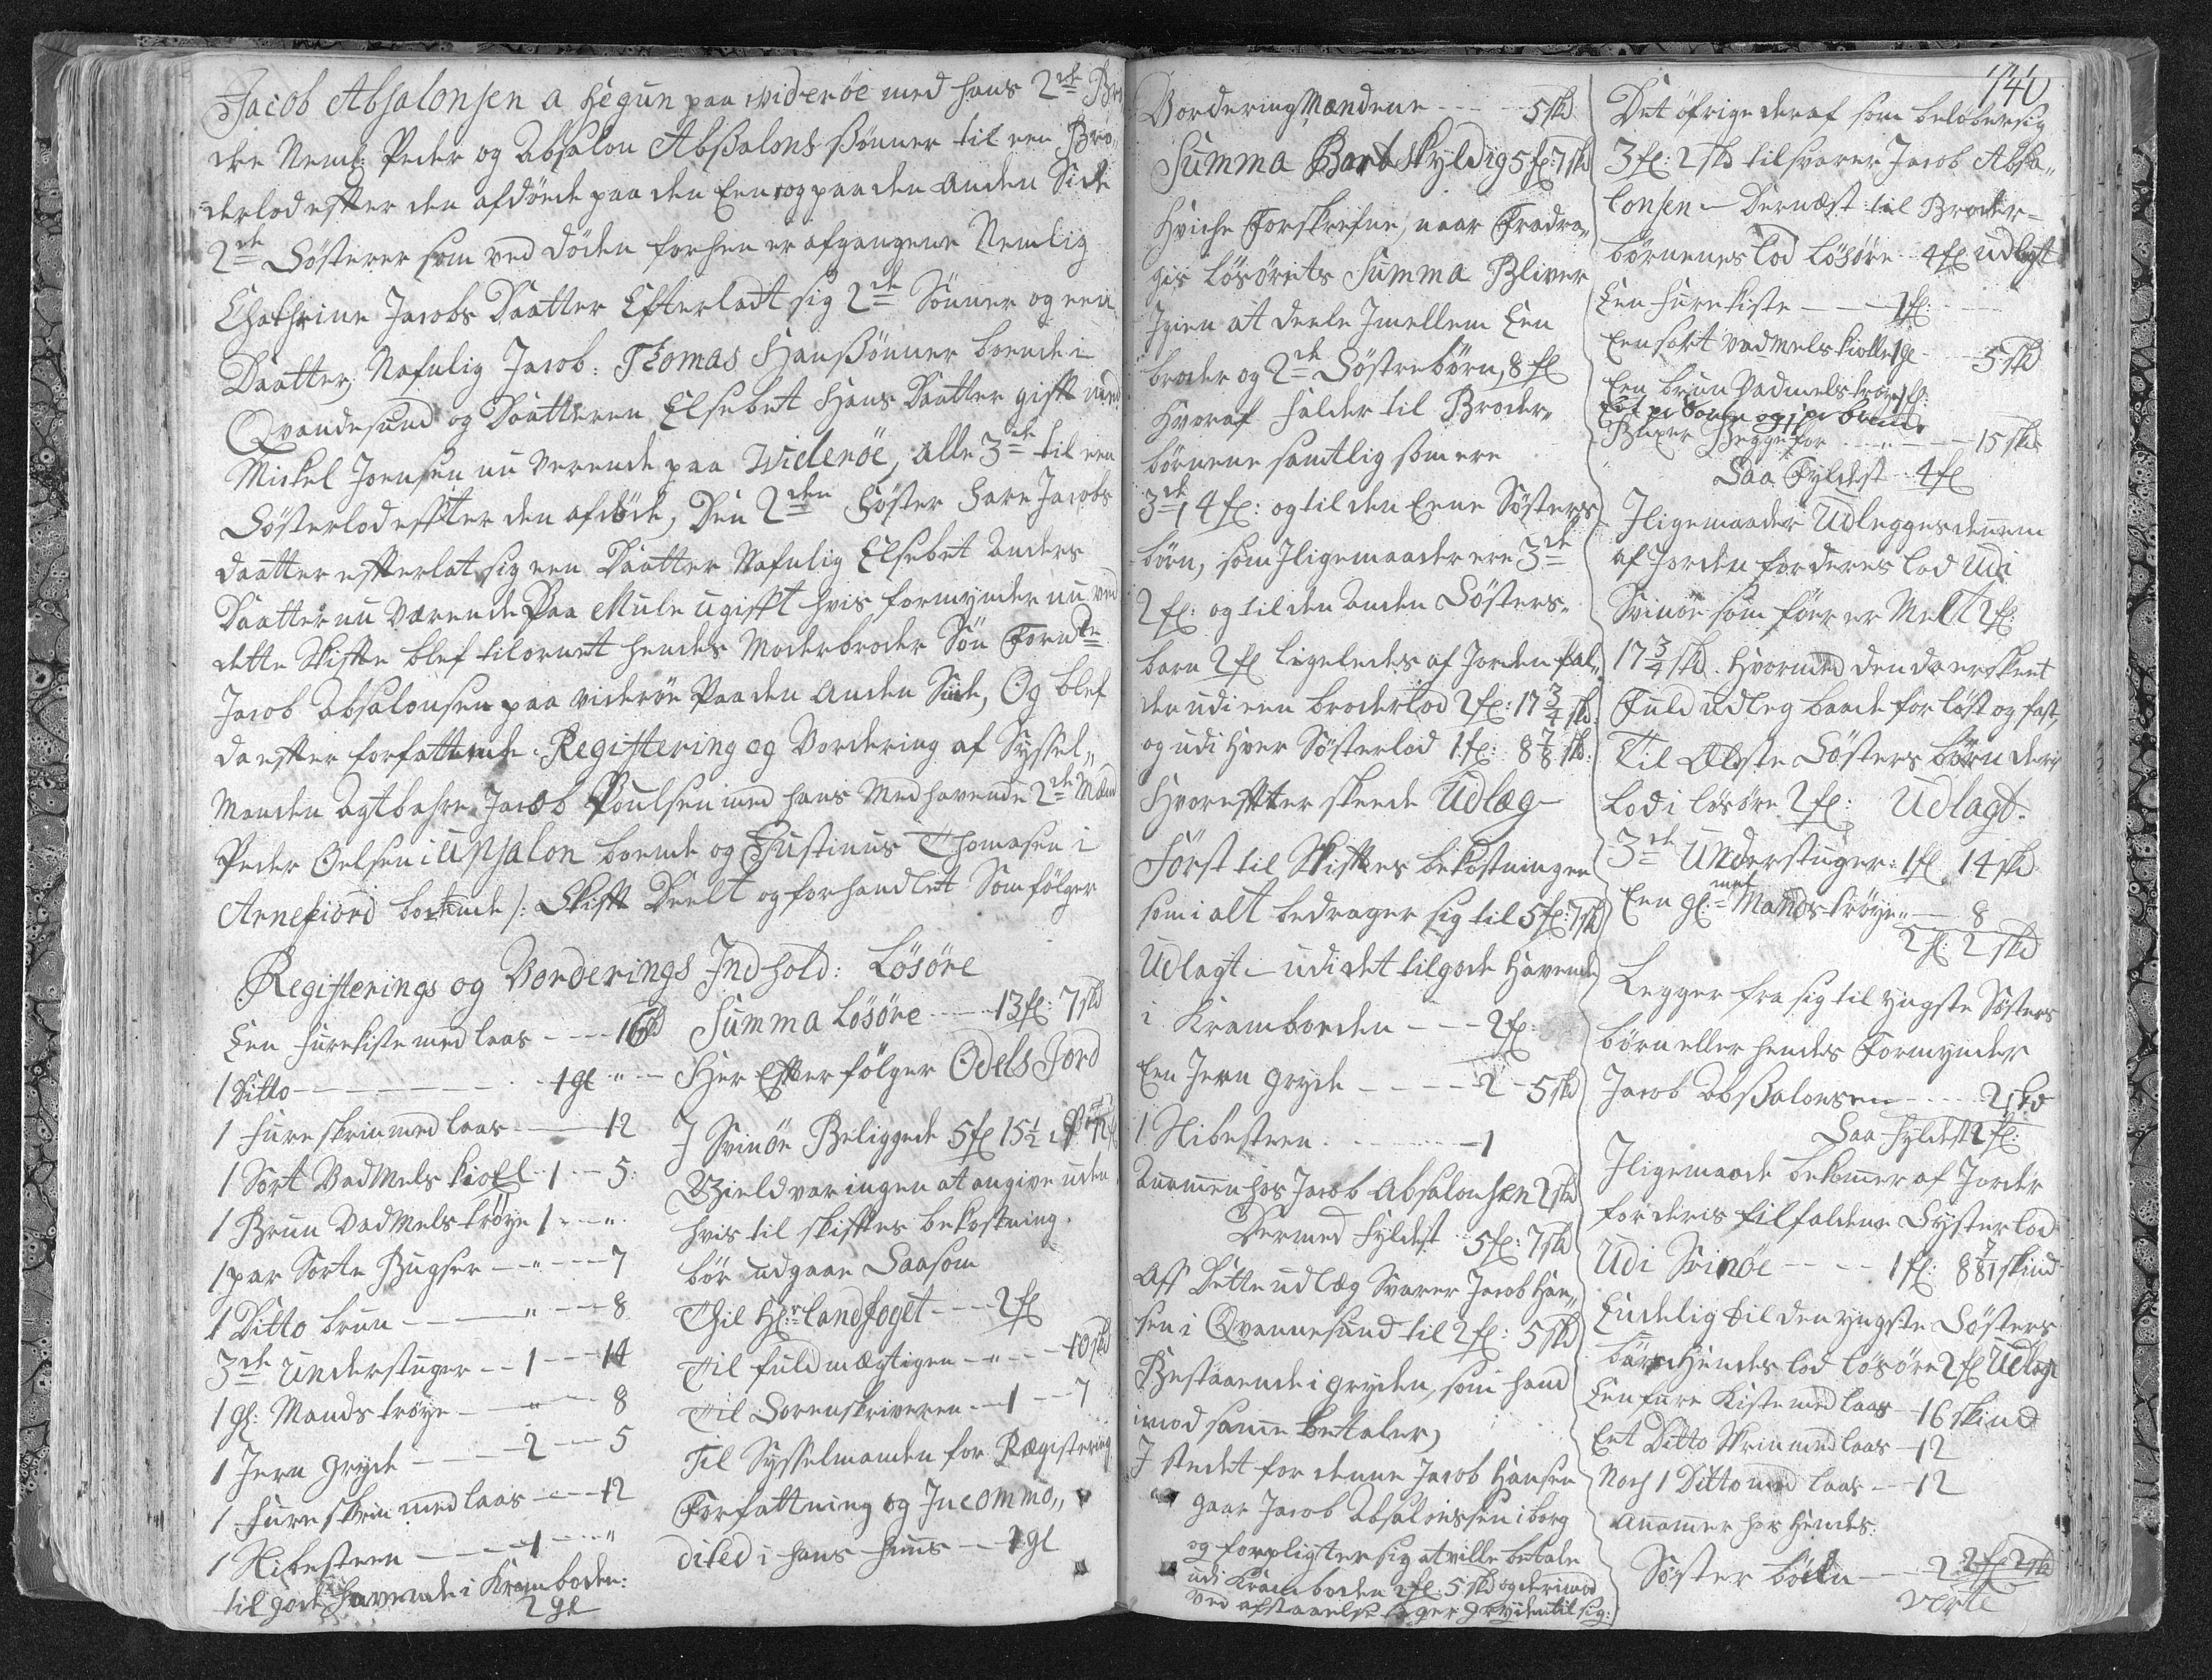 Jacob Absalonsen a hegün paa widerøe med hans 2de Brø
dre Neml: Peder og Absalon Absalons Sönner til een Brö„
derlod efter den afdöede paa den Een og paa den anden Side
2de Söstrer som ved döden forhen er afgangene Nemlig
Chathrine Jacobs Daatter Efterladt sig 2de Sönner og een
Daatter, Nafnlig Jacob: Thomas Hans Sönner boende i
Qvandesund og Daatteren Elsebet Hans Daatter gift med
Mickel Joensen nu verende paa Widerøe, alle 3de til een
Sösterlod effter den afdöde, Den 2den Söster Jacobs
daatter effterlat sig een Daatter Nafnlig Elsebet Anders
Daatter nu Værende Paa Mule ugifft hvis formynder nu ved
dette Skifte blef tilornet hendes Moderbroder Sön Fornte
Jacob Absalonsen paa viderøe Paa den anden Side, Og blef
da effter forfattende Registering og Vordering af Syssel„
Manden Agtbahre Jacob Poulsen med hans Medhavende 2de Mænd
Peder Oelsen i upsalon boende og Justinus Thomasen i
Arnefiord boende /: Skift Deelt og forhandlet Som følger
Registerings og Vorderings Indhold: Lösöre
Een furekiste med laas - - - 16 skd
1 Ditto - - - 1 gl „
1 fureskrin med laas - - - 12
1 Sort VadMels kioel - 1 - - 5:
1 Brun VadMels tröye 1 - - „
1 par Sorte Bugser - - „ - - 7
1 Ditto brun - - - „ - - 8
3de understuger - - 1 - - 14
1 gl: Mands tröye - - „ - - 8
1 Jern gryde - - - 2 - - 5
1 fureskrin med laas - - - 12
1 Hibesteen - - - 1 - - „
til gode havende i Kramboden:
2 gl
Summa Lösöre - - - 13 gl: 7 skd
Her Effter følger Odels Jord
I Svinöe Beliggede 5 gl 15½
Gield var ingen at angive uden
hvis til skifftes bekostning
bör udgaae Saasom
Til Hr: landfoget - - - 2 gl
Til fuldmægtigen - „ - - 10 skd
Til Sorenskriveren - - 1 - - 7
Til Sysselmanden for Registering
Forfattning og Incommo„
ditet i hans huus - - 1 gl
VorderingMændene - - - 5 skd
Summa Bort skyldig 5 gl: 7 skd
Hvilche Forskrefne, naar Fradra„
gis lösörets Summa Bliver
Igien at deele Imellem Een
broder og 2de Söstrebörn, 8 gl
Hvoraf falder til Broder„
börnene samtlig som ere
3de, 4 gl: og til den Eene Sösters
börn, som Iligemaader ere 3de
2 gl: og til den anden Sösters„
barn 2 gl ligeledes af Jorden fal„
der udi een broderlod 2 gl: 17¾ skd:
og udi hver Sösterlod 1 gl: 8⅞ skd:
Hvoreffter skeede Udlæg
Först til Skifftes bekostninger
som i alt bedrager sig til 5 gl: 7 skd
Udlagt - udi det tilgode havende
i Kramboeden - - - 2 gl
Een Jern gryde - - - 2 - 5 skd
1 Hibesteen - - - 1
Annammen hos Jacob Absalonsen 2 skd
Dermed fyldest 5 gl: 7 skd
Aff Dette udlæg Svarer Jacob Han„
sen i Qvannesund til 2 gl: 5 skd
Bestaaende i gryden, som hand
imod samme betaler,
I stedet for denne Jacob Hansen
gaar Jacob Absalonssen i borg
og forpligter sig at ville betale
udi Kramboden 2 gl: 5 skd og derimod
ved afstaaelse tager gryden til sig:
140
Det öfrige deraf som beløber sig
3 gl: 2 skd tilsvarer Jacob Absa„
lonsen - Dernæst til Broder=
börnenes lod lösöre 4 gl udlagt
Een furekiste - - - 1 gl:
Een sort vadmels kiolle 1 gl - - 5 skd
Een brun Vadmels tröye 1 gl:
Buxer Begge for - - - 15 skd
Saa Fyldest - 4 gl
Iligemaader Udlegges dennem
af Jorden for deres lod Udi
Svinöe som för er Melt 2 gl:
17¾ skd. Hvormed den da er skeet
Fuld udleg baade for löst og fast,
Til Eldste Sösters börn deris
Lod i lösöre 2 gl: Udlagt.
3de Understuger: 1 gl 14 skd
Een gl: Mands tröye „ - 8
2 gl: 2 skd
Legger fra sig til yngste Sösters
börn eller hendes Formynder
Jacob Absalonsen - - - 2 skd
Saa fyldest 2 gl:
Iligemaade bekommer af Jorder
for deris tilfaldene Systerlod
Udi Svinöe - - - 1 gl: 8⅞ skind
Endelig til den yngste Sösters
barn Hendes lod lösöre 2 gl Udlagt
Een fure Kiste med laas - 16 skind
Eet Ditto Skrin med laas - 12
Noch 1 Ditto med laas - 12
annamer hos Hendes
Söster börn - - 2
2 gl 2 skd
verte